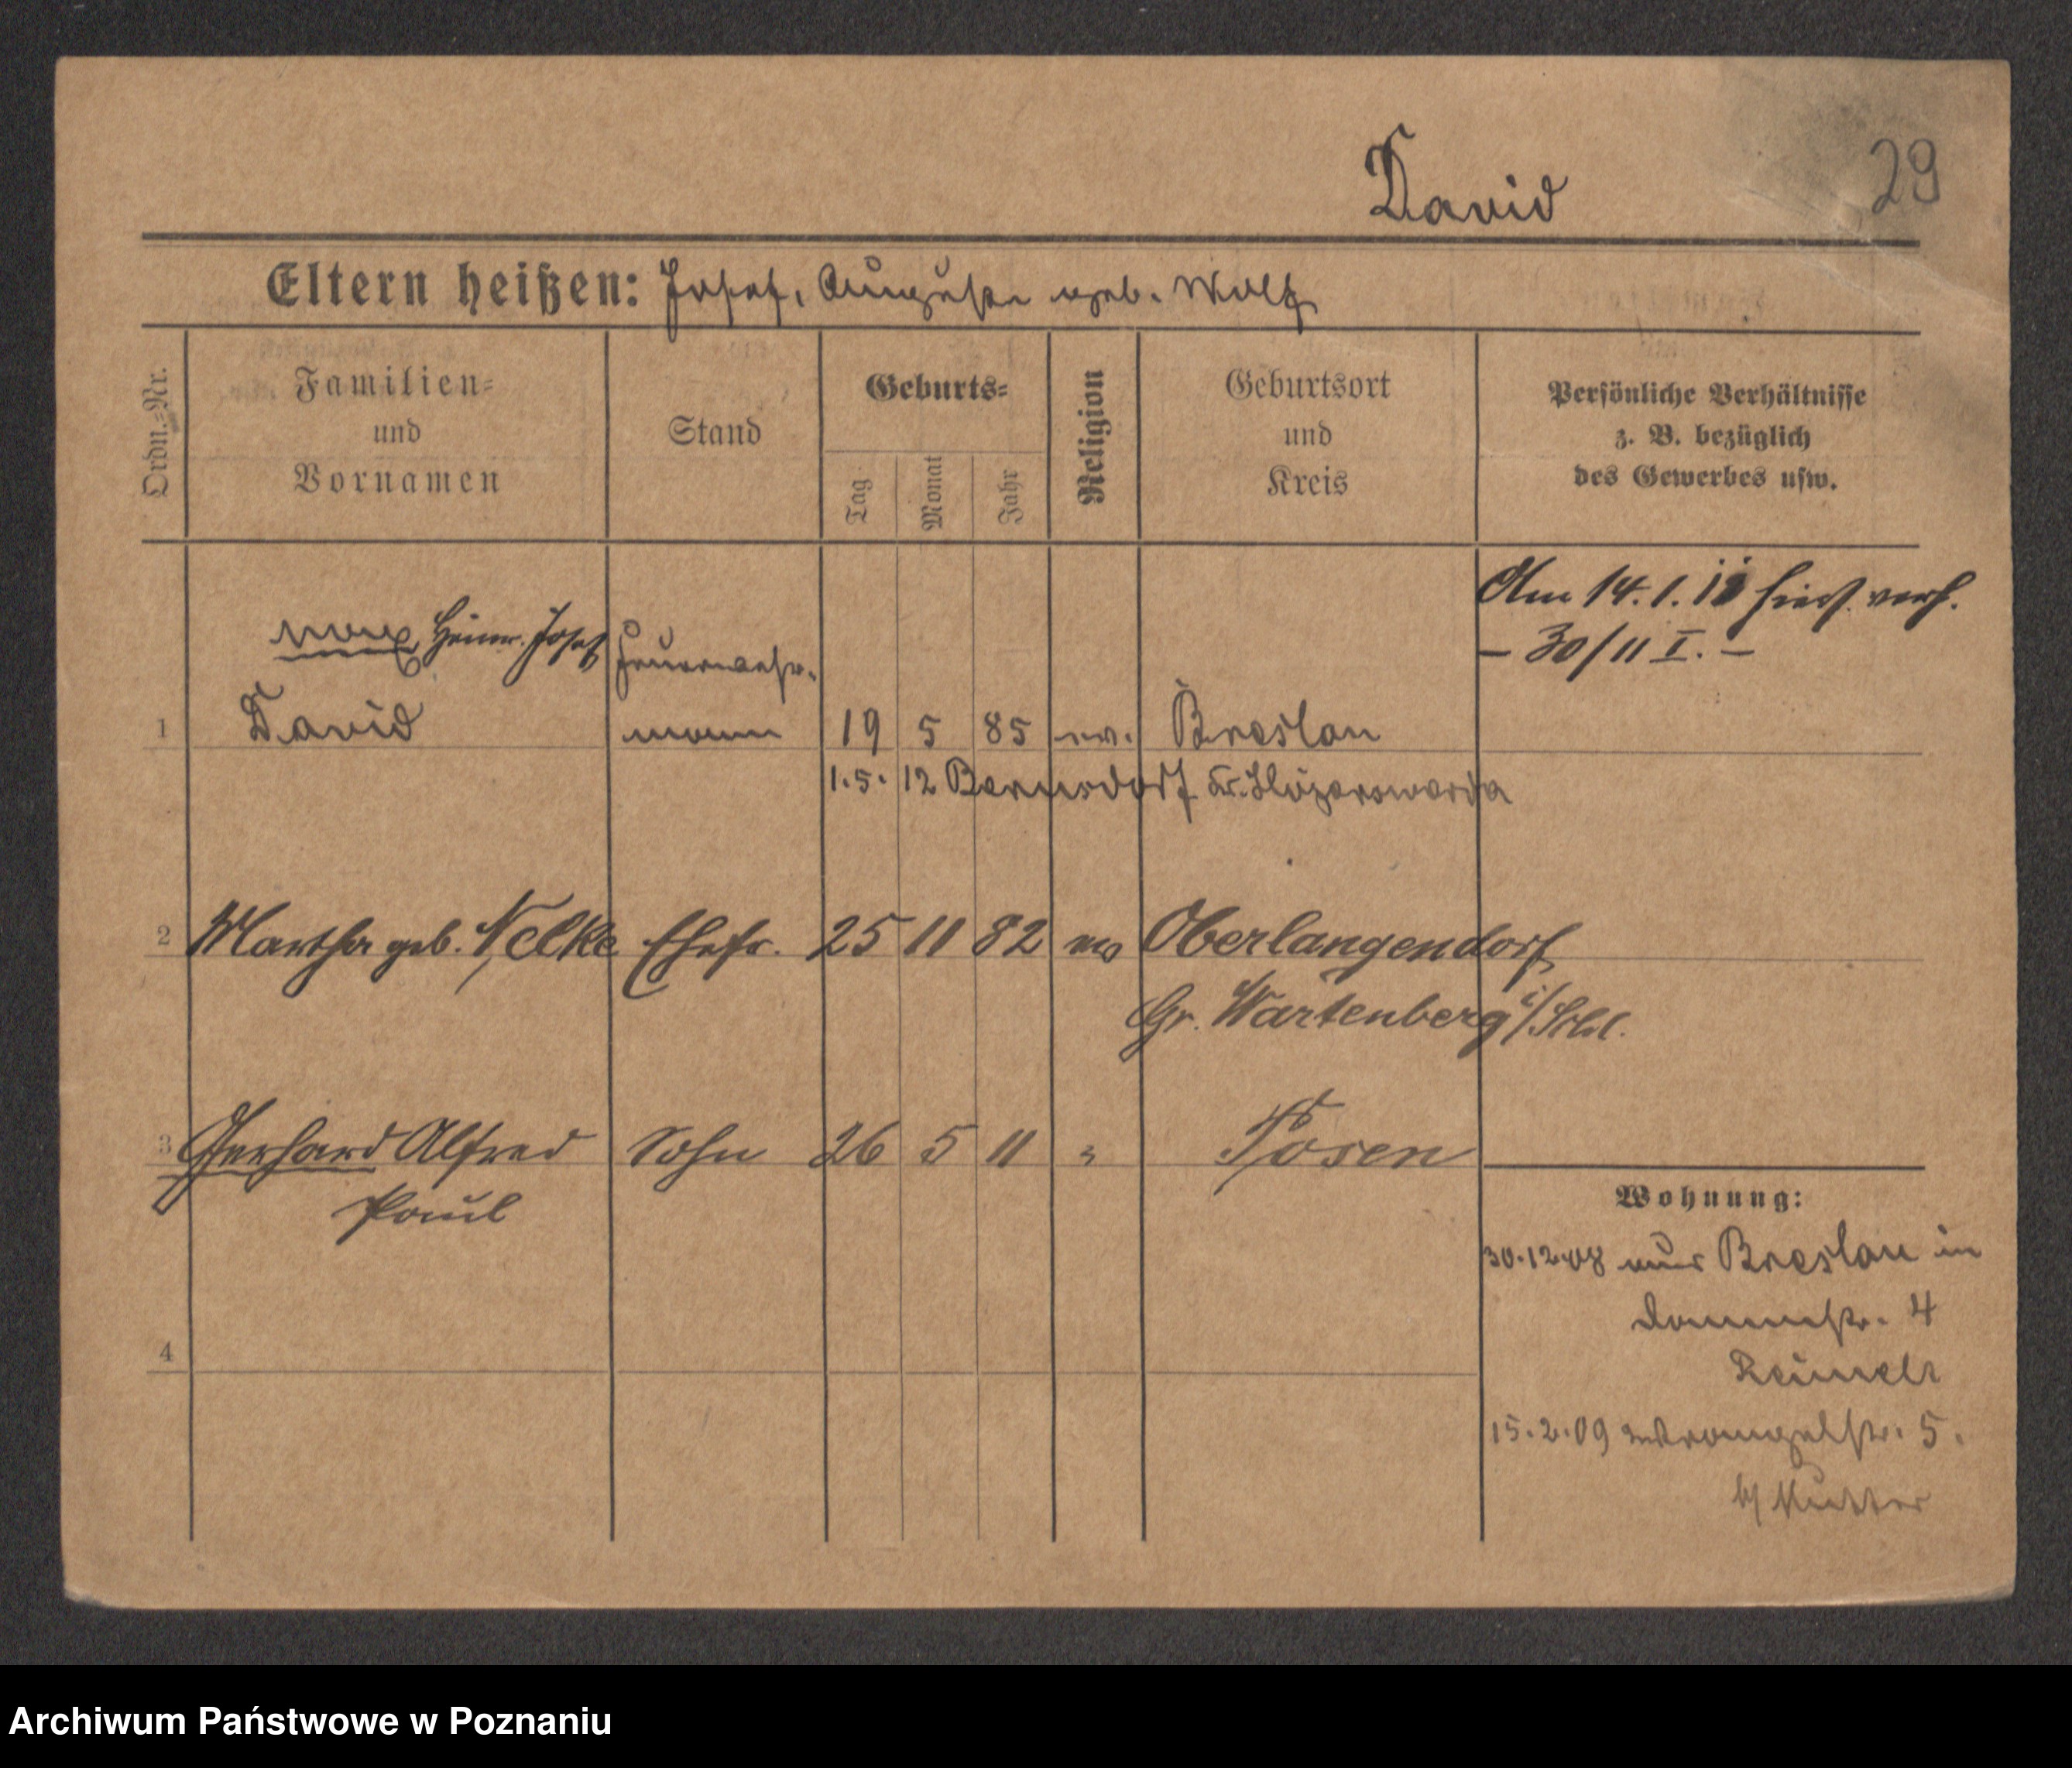 David
29
Eltern heißen: Josef, Auguste geb. Wolf
Ordn.=Nr.
Familien=
und
Vornamen
Stand
Geburts=
Tag
Monat
Jahr
Religion
Geburtsort
und
Kreis
Persönliche Verhältnisse
z. B. bezüglich
des Gewerbes usw.
Am 14.1. hies. verh.
– 30/11 I. –
Max Heinr. Josef Feuerwehr-
1 David mann 19 5 85 ev. Breslau
1.5. 12 Bernsdorf Kr. Hoyerswerda
2 Martha geb. Nelke Ehefr. 25 11 82 ev Oberlangendorf
Gr. Wartenberg i/Schl.
3 Gerhard Alfred Sohn 26 5 11 " Posen
Paul
4
Wohnung:
30.12.08 aus Breslau in
4
15.2.09 Wrangelstr. 5.
b/
Archiwum Państwowe w Poznaniu